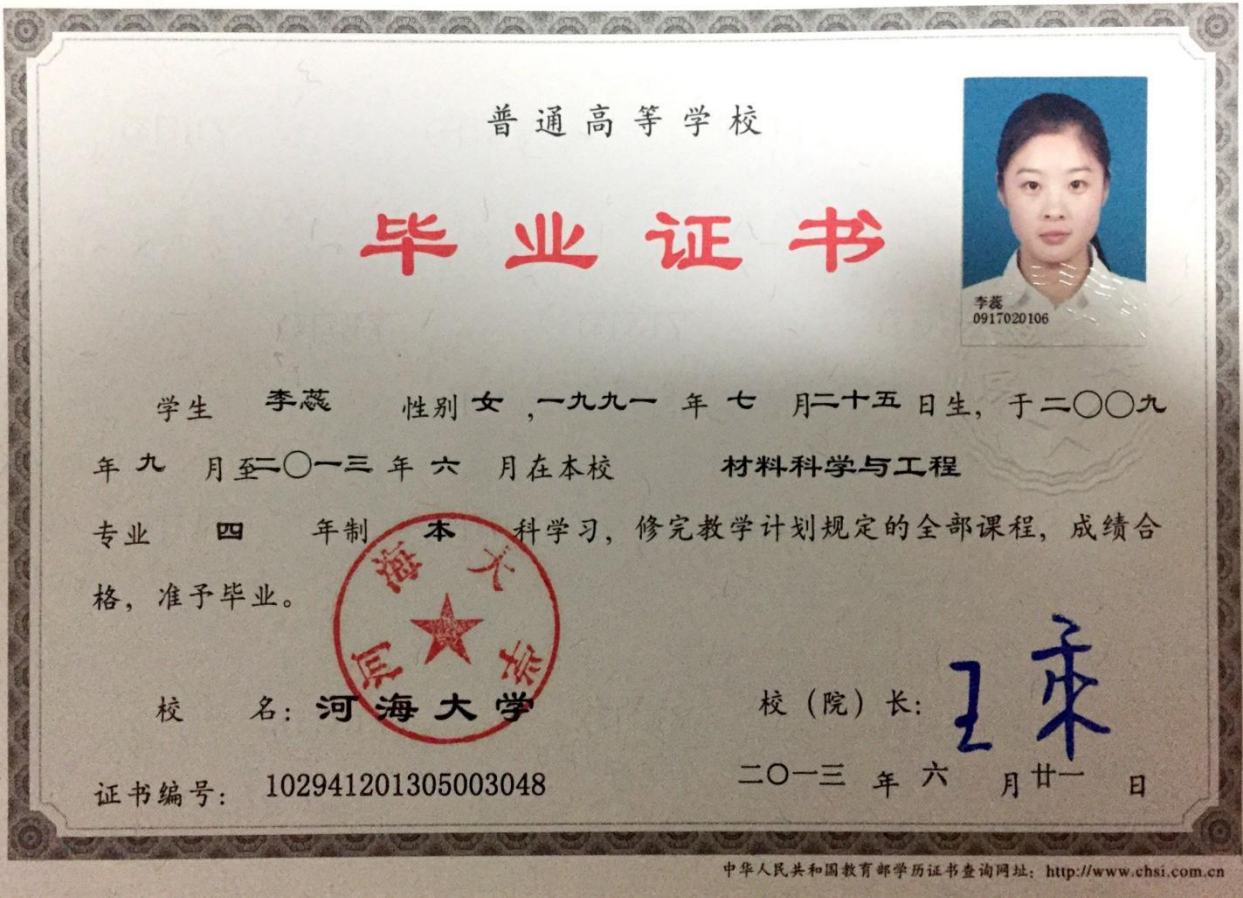 普通高等学校
毕业证书
李蕊
0917020106
学生 李蕊 性别 女 ,一九九一 年 七 月二十五 日生，于 二〇〇九
年 九 月至二〇一三 年 六 月在本校 材料科学与工程
专业 四 年制 本 科学习，修完教学计划规定的全部课程，成绩合
格，准予毕业。
河海大学
校 名：河海大学
校（院）长：
证书编号：102941201305003048
二〇一三 年 六 月 廿一 日
中华人民共和国教育部学历证书查询网址：http://www.chsi.com.cn